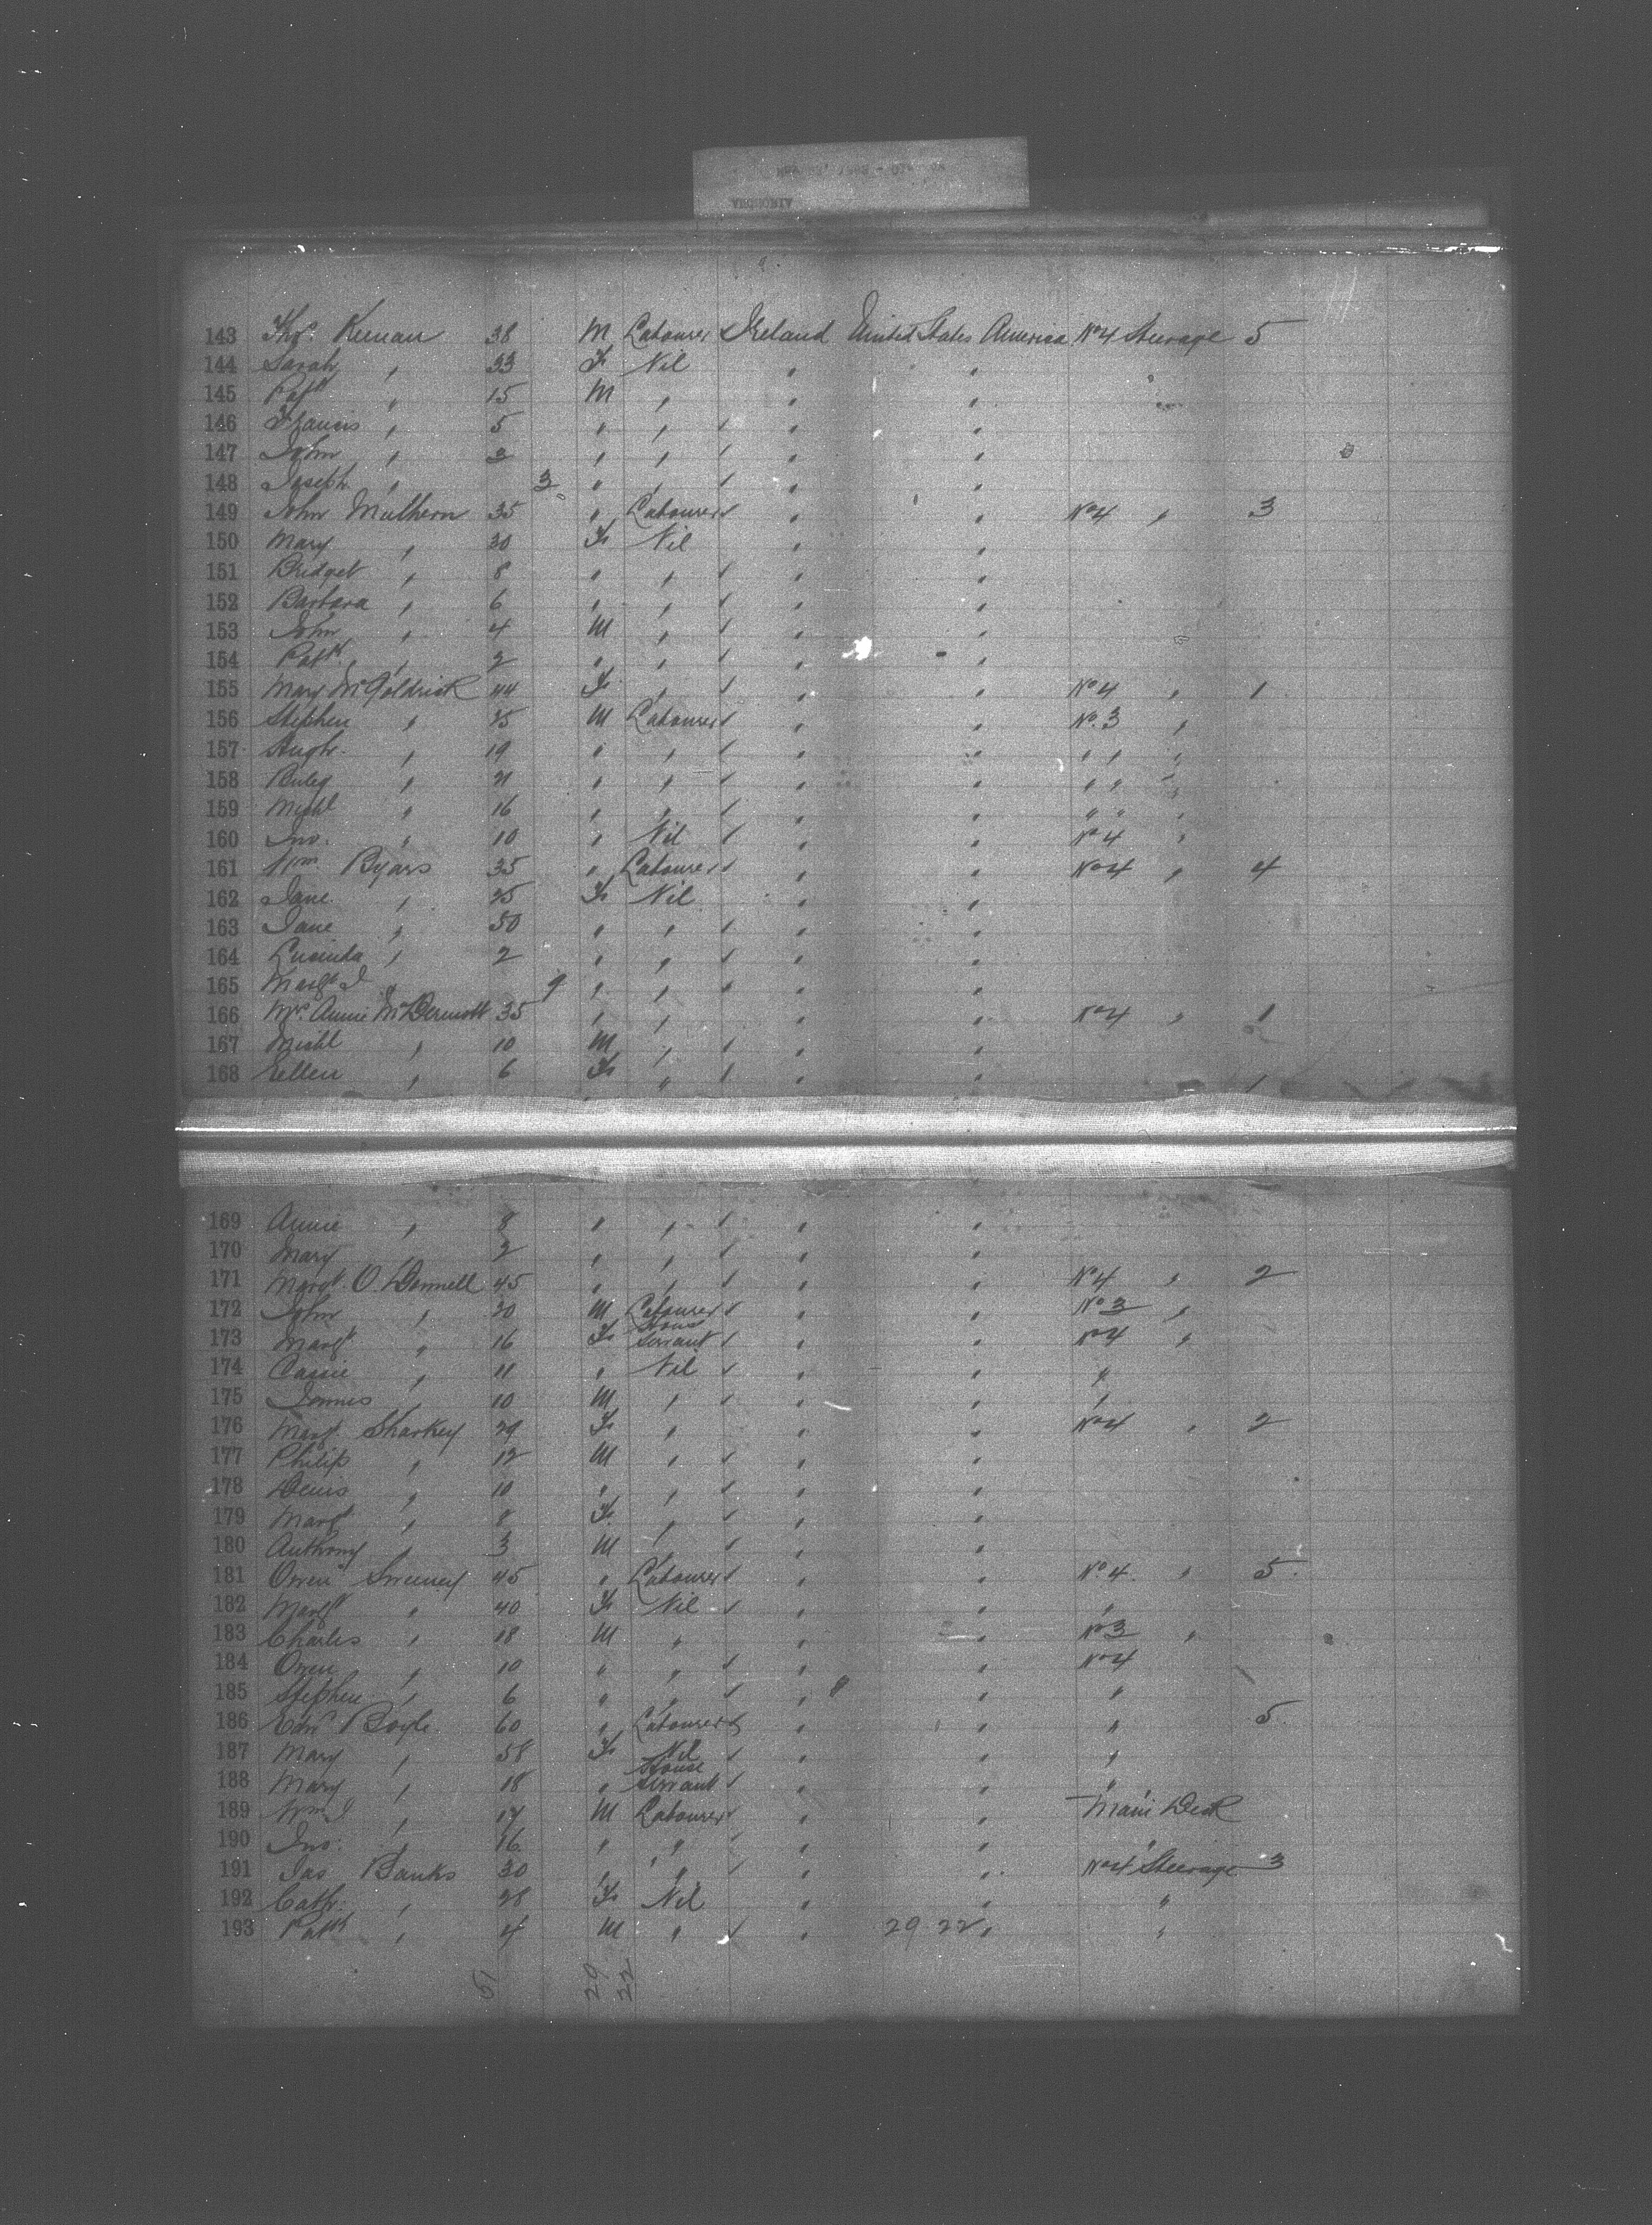 143 Thos. Keenan 38 M Labourer Ireland United States America No 4 Steerage 5
144 Sarah " 33 F Nil " "
145 Patk " 15 M " " "
146 Francis " 5 " " " "
147 John " 3 " " " "
148 Joseph " 3 " " " "
149 John Mulhern 35 " Labourer " " No 4 " 3
150 Mary " 30 F Nil " "
151 Bridget " 8 " " " "
152 Barbara " 6 " " " "
153 John " 4 M " " "
154 Patk " 2 " " " "
155 Mary McGoldrick 44 F " " " No 4 " 1
156 Stephen " 25 M Labourer " " No. 3 "
157 Hugh " 19 " " " " " " "
158 " 21 " " " " " " "
159 Michl " 16 " " " " " " "
160 Jno. " 10 " Nil " " No 4 "
161 Wm. Byars 35 " Labourer " " No 4 " 4
162 Jane " 25 F Nil " "
163 Jane " 50 " " " "
164 Lucinda " 2 " " " "
165 Margt J " 9 " " " "
166 Mrs. Annie McDermott 35 " " " " No 4 " 1
167 Michl " 10 M " " "
168 Ellen " 6 F " " "
169 Annie " 8 " " " "
170 Mary " 2 " " " "
171 Margt. O'Donnell 45 " " " " No 4 " 2
172 John " 20 M Labourer " " No 3 "
173 Margt " 16 F House Servant " " No 4 "
174 Cassie " 11 " Nil " " "
175 James " 10 M " " " "
176 Margt. Sharkey 29 F " " " No 4 " 2
177 Philip " 12 M " " "
178 Denis " 10 " " " "
179 Margt " 8 F " " "
180 Anthony " 3 M " " "
181 Owen Sweeney 45 " Labourer " " No. 4 " 5
182 Margt " 40 F Nil " " "
183 Charles " 18 M " " " No 3 "
184 Owen " 10 " " " " No 4
185 Stephen " 6 " " " " "
186 Edwd Boyle 60 " Labourer " " " 5
187 Mary " 58 F Nil " " "
188 Mary " 18 " House Servant " " "
189 Wm J " 17 M Labourer " " Main Deck
190 Jno. " 16 " " " " "
191 Jas Banks 30 " " " " No 4 Steerage 3
192 Cath. " 28 F Nil " " "
193 Patk " 4 M " " 29 22 " "
51 29 22